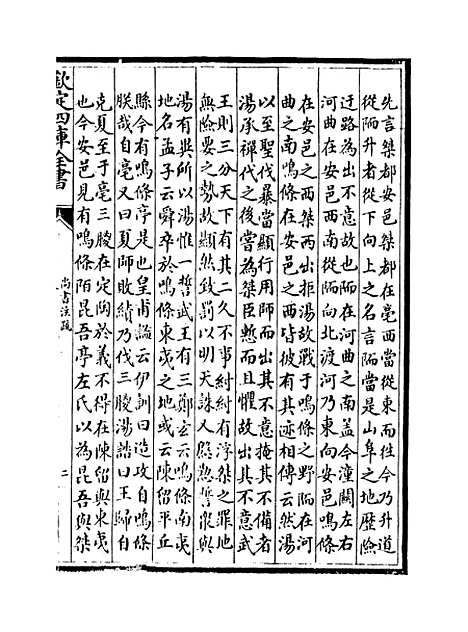 先言桀都安邑桀都在亳西當從東而往今乃升道
從陑升者從下向上之名言陑當是山阜之地歴險
迂路為出不意故也陑在河曲之南蓋今潼關左右
河曲在安邑西南從陑向北渡河乃東向安邑鳴條
在安邑之西桀西出拒湯故戰于鳴條之野陑在河
曲之南鳴條在安邑之西皆彼有其迹相傳云然湯
以至聖代暴當顯行用師而出其不意掩其不備者
湯承禪代之後嘗為桀臣慙而且懼故出其不意武
王則三分天下有其二久不事紂紂有浮桀之罪地
無險要之勢故顯然致罰以明天誅又慇懃誓衆與
湯有異所以湯惟一誓武王有三鄭𤣥云鳴條南夷
地名孟子云舜卒於鳴條東夷之地或云陳留平丘
縣今有鳴條亭是也皇甫謐云伊訓曰造攻自鳴條
朕哉自亳又曰夏師敗績乃伐三朡湯誥曰王歸自
克夏至于亳三朡在定陶於義不得在陳留與東夷
也今安邑見有鳴條陌昆吾亭左氏以為昆吾與桀
欽定四庫全書
尚書注疏
二